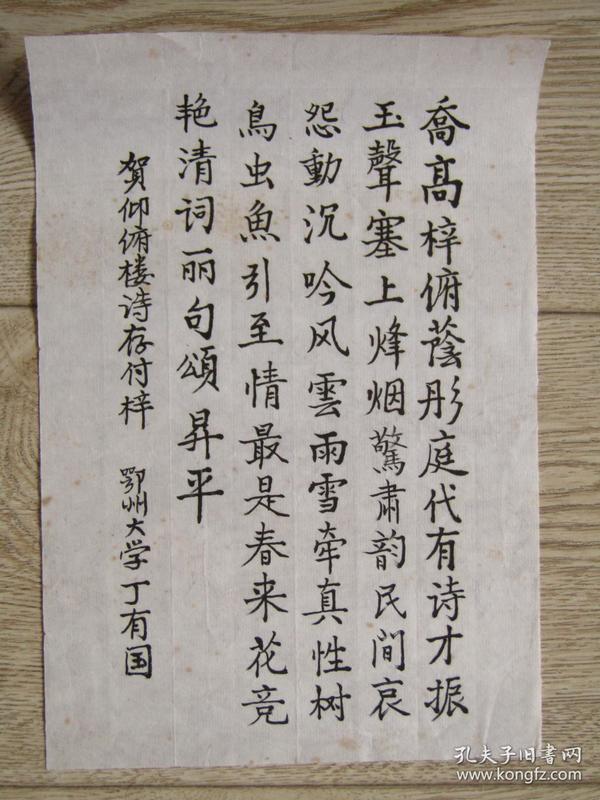 喬高梓俯蔭彤庭代有诗才振
玉聲塞上烽烟驚肅韵民间哀
怨動沉吟风雲雨雪牵真性树
鳥虫魚引至情最是春来花竞
艳清词丽句頌昇平
贺仰俯楼诗存付梓 鄂州大学丁有国
孔夫子旧书网
www.kongfz.com